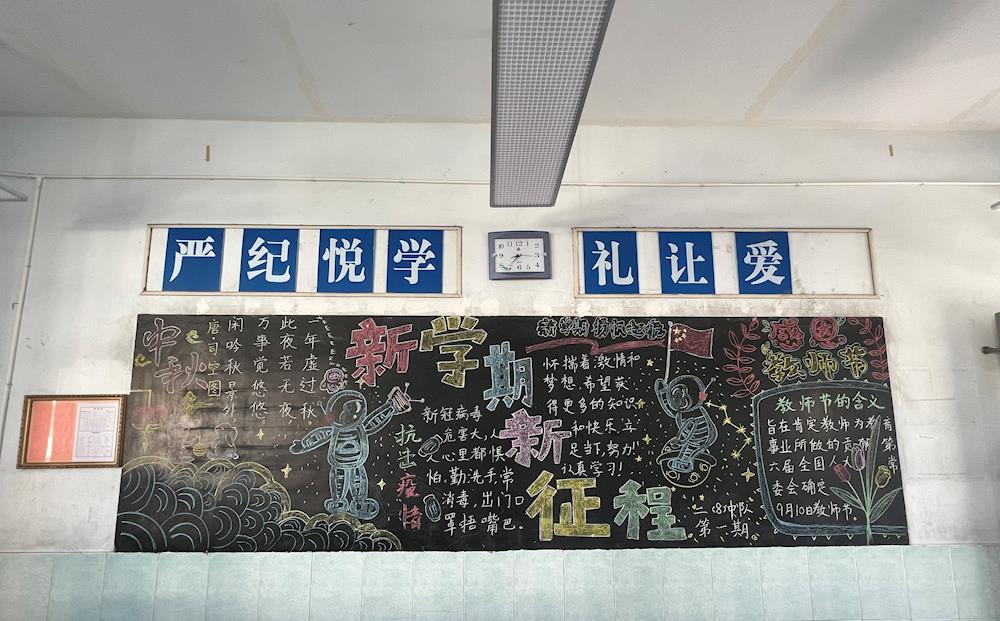 严纪悦学
礼让爱
中秋
唐·司空图
闲吟秋景外
万事觉悠悠
此夜若无夜
一年虚过秋
新学期
新征程
抗击疫情
新冠病毒
危害大,人
心里都惧
怕.勤洗手,常
消毒,出门口
罩捂嘴巴.
新学期扬帆起航
怀揣着激情和
梦想,希望获
得更多的知识
和快乐,立
足当下,努力!
认真学习!
二(8)中队
第一期
感恩
教师节
教师节的含义
旨在肯定教师为教育
事业所做的贡献
六届全国人大常
委会确定
9月10日教师节.